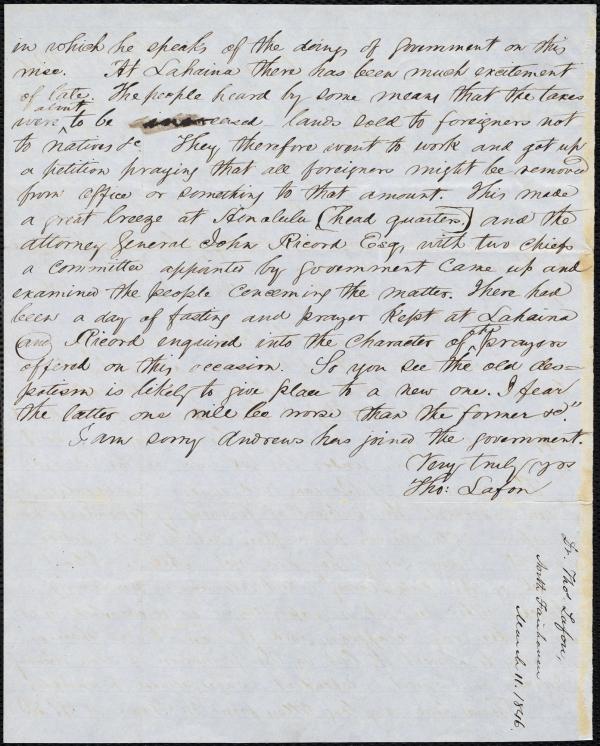 in which he speaks of the doings of government on this
wise. At Lahaina there has been much excitement
of late. The people heard by some means that the taxes
were about to be increased lands sold to foreigners not
to natives &c They therefore went to work and got up
a petition praying that all foreigners might be removed
from office or something to that amount. This made
a great breeze at Honolulu (head quarters) and the
attorney General John Ricord Esq, with two chiefs
a committee appointed by government came up and
examined the people concerning the matter. There had
been a day of fasting and prayer kept at Lahaina
(and) Ricord enquired into the character of the prayers
offered on this occasion. So you see the old des=
potism is likely to give place to a new one. I fear
the latter one will be worse than the former &c."
I am sorry Andrews has joined the government.
Very truly yrs
Tho: Lafon
Dr. Tho. Lafon,
North Fairhaven
March 11. 1846.